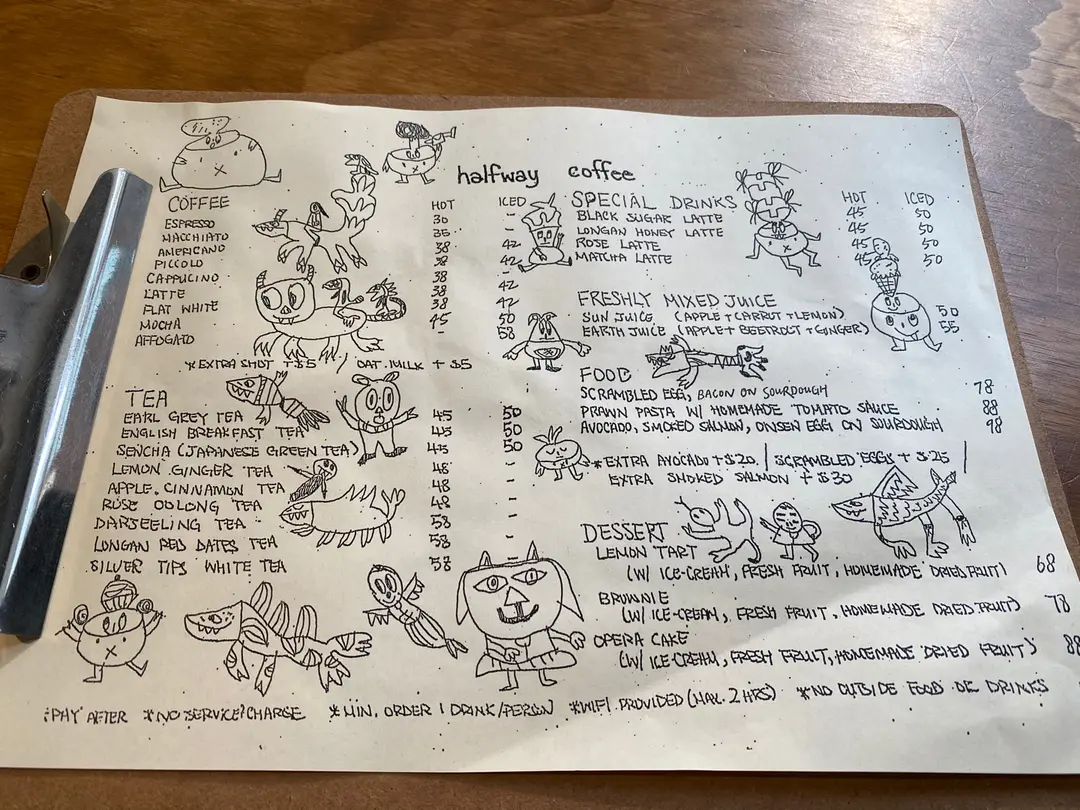 halfway coffee
COFFEE HOT ICED
ESPRESSO 30 -
MACCHIATO 35 -
AMERICANO 38 42
PICCOLO 38 42
CAPPUCINO 38 -
LATTE 38 42
FLAT WHITE 38 42
MOCHA 45 50
AFFOGATO - 58
*EXTRA SHOT +$5 / OAT MILK + $5
TEA
EARL GREY TEA 45 50
ENGLISH BREAKFAST TEA 45 50
SENCHA (JAPANESE GREEN TEA) 45 50
LEMON GINGER TEA 48 -
APPLE. CINNAMON TEA 48 -
ROSE OOLONG TEA 48 -
DARJEELING TEA 58 -
LONGAN RED DATES TEA 58 -
SILVER TIPS WHITE TEA 58 -
SPECIAL DRINKS HOT ICED
BLACK SUGAR LATTE 45 50
LONGAN HONEY LATTE 45 50
ROSE LATTE 45 50
MATCHA LATTE 45 50
FRESHLY MIXED JUICE
SUN JUICE (APPLE + CARROT + LEMON) 50
EARTH JUICE (APPLE + BEETROOT + GINGER) 55
FOOD
SCRAMBLED EGG, BACON ON SOURDOUGH 78
PRAWN PASTA W/ HOMEMADE TOMATO SAUCE 88
AVOCADO, SMOKED SALMON, ONSEN EGG ON SOURDOUGH 98
*EXTRA AVOCADO +$20 / SCRAMBLED EGGS + $25 /
EXTRA SMOKED SALMON + $30
DESSERT
LEMON TART
(W/ ICE-CREAM, FRESH FRUIT, HOMEMADE DRIED FRUIT) 68
BROWNIE
(W/ ICE-CREAM, FRESH FRUIT, HOMEMADE DRIED FRUIT) 78
OPERA CAKE
(W/ ICE-CREAM, FRESH FRUIT, HOMEMADE DRIED FRUIT) 88
*PAY AFTER *NO SERVICE CHARGE *MIN. ORDER 1 DRINK/PERSON *WIFI PROVIDED (MAX. 2 HRS) *NO OUTSIDE FOOD OR DRINKS